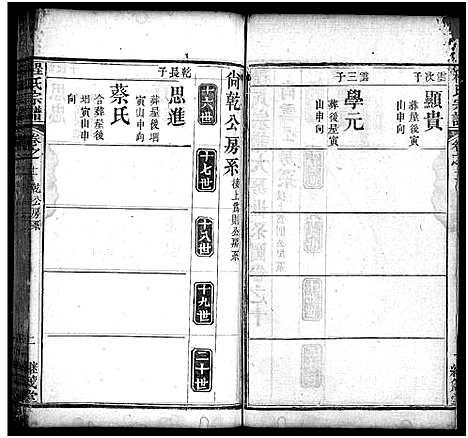 雲次子
顯貴
葬屋後寅
山申向
雲三子
學元
葬後屋寅
山申向
尙乾公房系
接上為則公房系
十六世
十七世
十八世
十九世
二十世
乾長子
思進
葬屋後塆
寅山申向
蔡氏
合葬屋後
塆寅山申
向
程氏宗譜
乾公房系